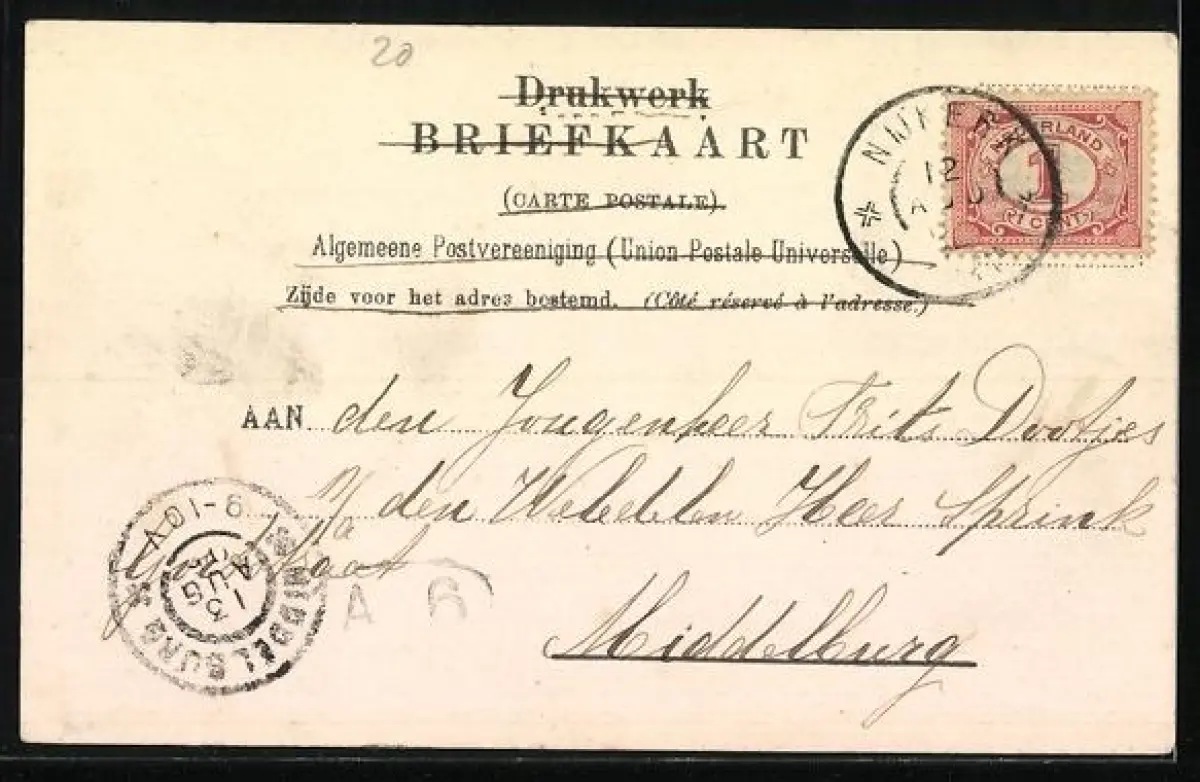 20
Drukwerk
BRIEFKAART
(CARTE POSTALE).
Algemeene Postvereeniging (Union Postale Universelle)
Zijde voor het adres bestemd. (Côté réservé à l'adresse.)
NIJKERK
12
AUG
NEDERLAND
1
CENT
AAN den Jongenheer Frits Dootjes
p/a den WelEdelen Heer Sprink
Middelburg
MIDDELBURG
13
AUG
9-10V
A 6